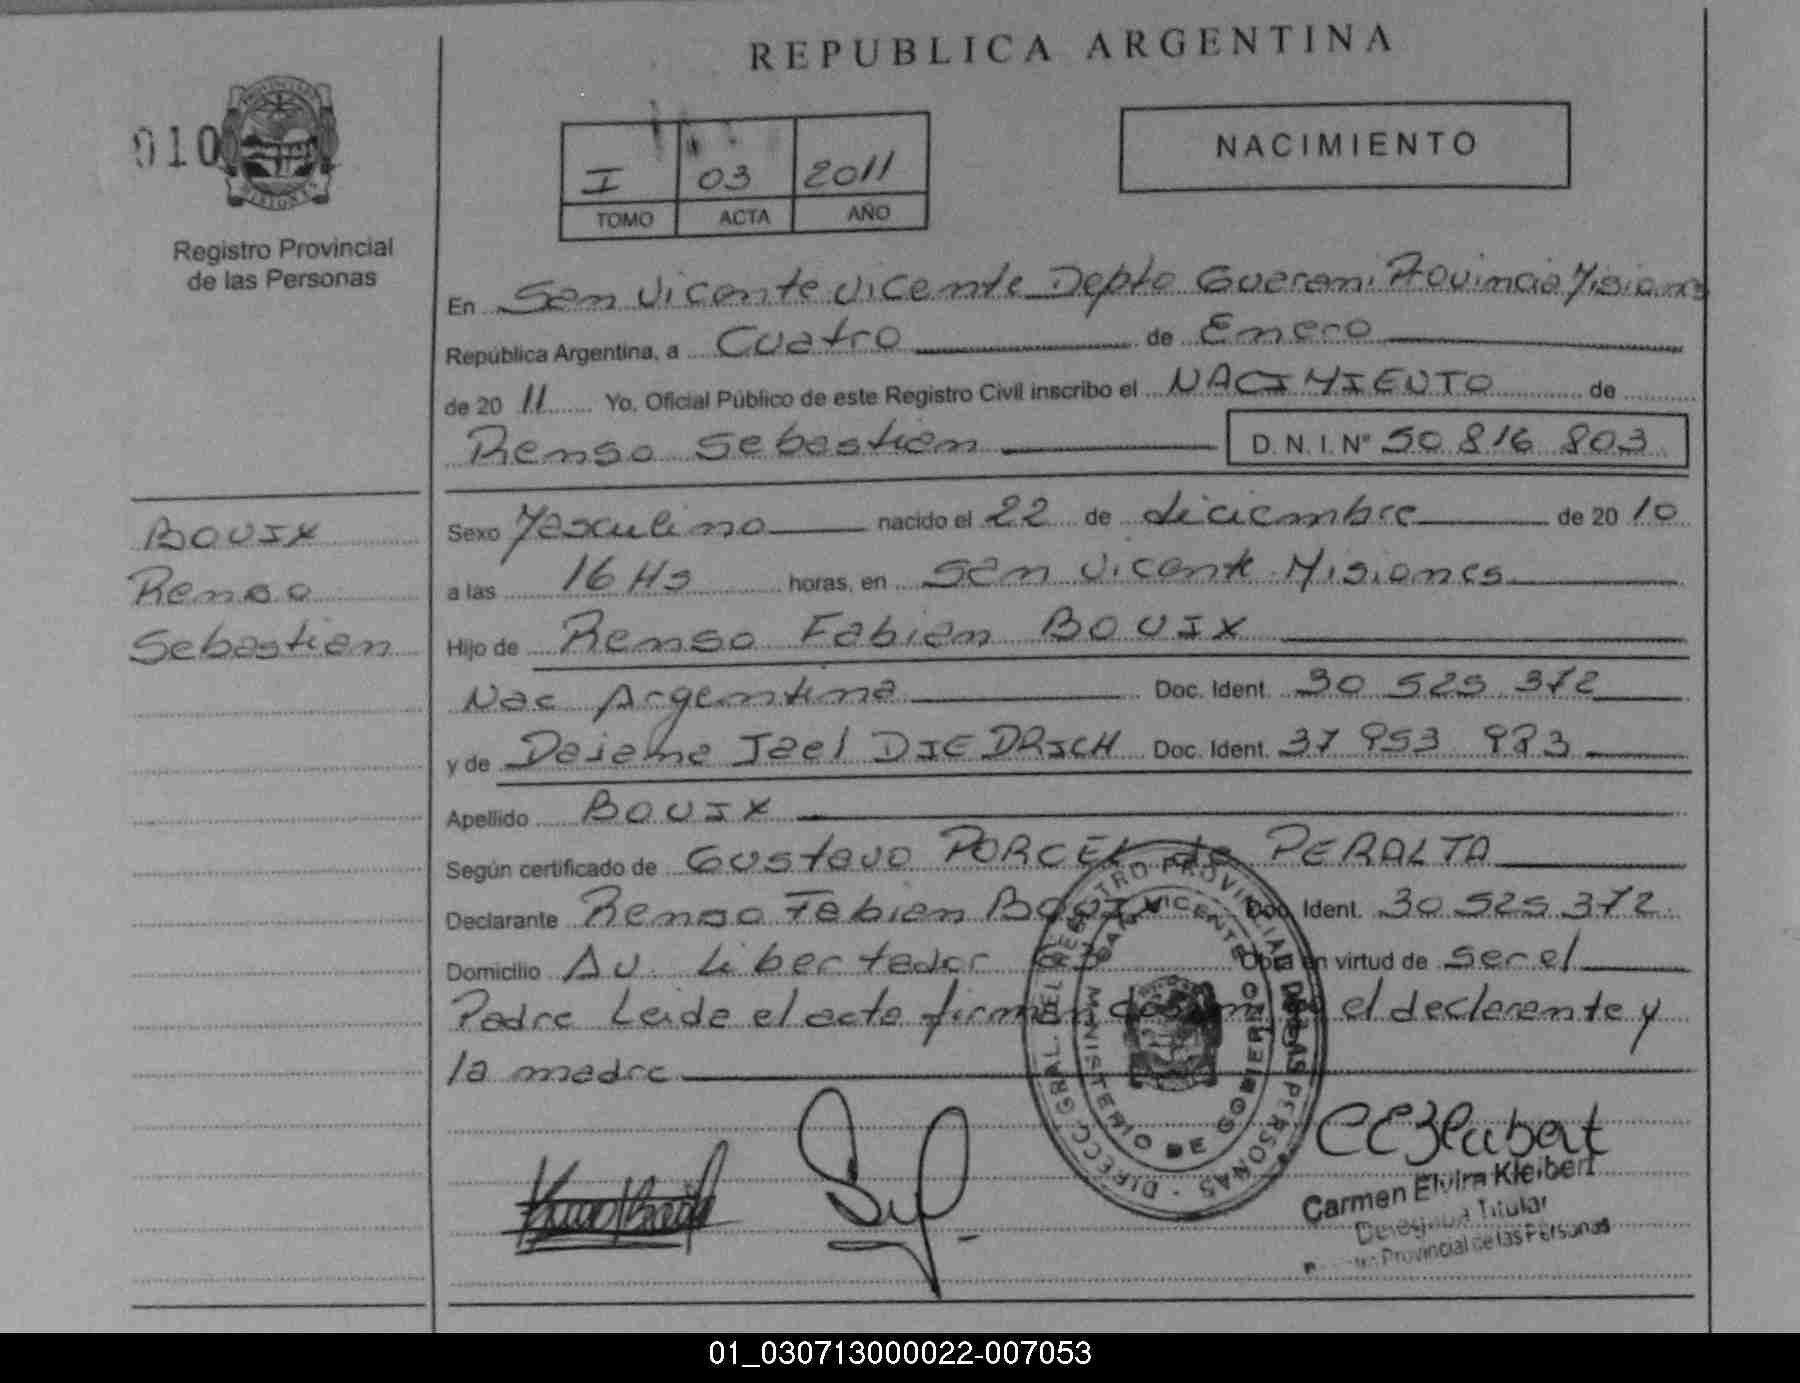 REPUBLICA ARGENTINA
010
Registro Provincial
de las Personas
I 03 2011
TOMO ACTA AÑO
NACIMIENTO
En San Vicente Vicente Depto Guarani Provincia Misiones
República Argentina, a Cuatro de Enero
de 2011 Yo, Oficial Público de este Registro Civil inscribo el NACIMIENTO de
Renso Sebastian D.N.I. Nº 50 816 803
BOUIX
Renso
Sebastian
Sexo Masculino nacido el 22 de diciembre de 2010
a las 16 Hs horas, en San Vicente Misiones
Hijo de Renso Fabian BOUIX
Nac Argentina Doc. Ident. 30 525 372
y de Daiana Jael DIEDRICH Doc. Ident. 37 953
Apellido BOUIX
Según certificado de Gustavo PORCEL de PERALTA
Declarante Renso Fabian BOUIX Doc. Ident. 30 525 372
Domicilio Av. Libertador Obra en virtud de ser el
Padre Leida el acta firman el declarante y
la madre
DIRECC. GRAL. DEL REGISTRO PROVINCIAL DE LAS PERSONAS
SAN VICENTE
MINISTERIO DE GOBIERNO
Carmen Elvira Kleibert
Delegada Titular
Provincial de las Personas
01_030713000022-007053